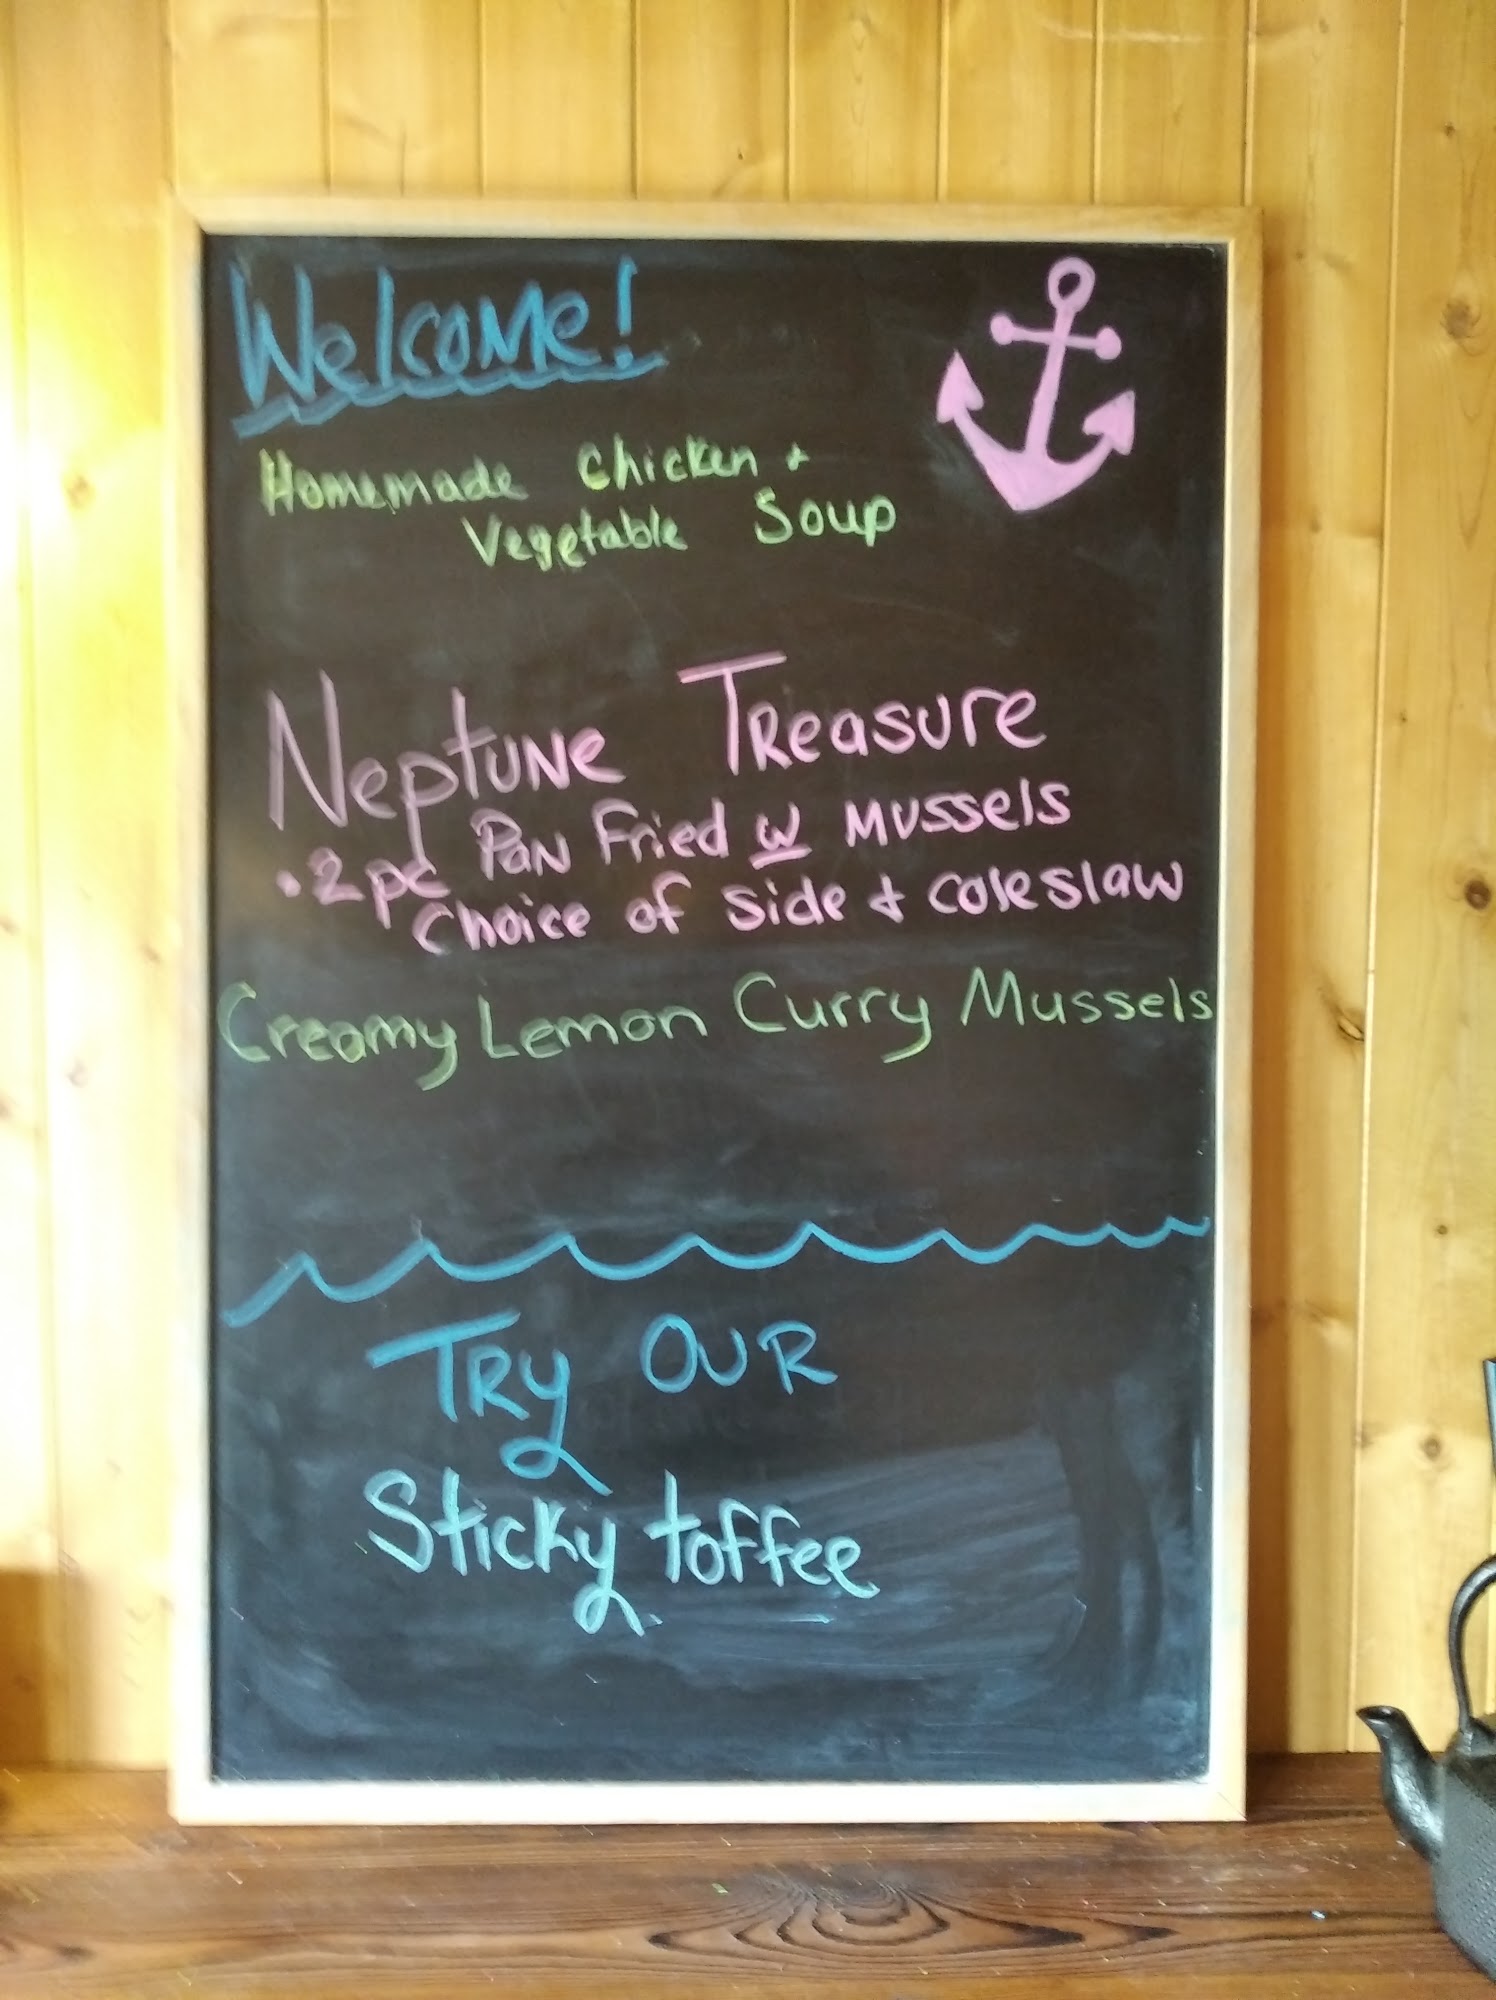 Welcome!
Homemade Chicken +
Vegetable Soup
Neptune Treasure
• 2pc Pan Fried w Mussels
Choice of side + coleslaw
Creamy Lemon Curry Mussels
Try OUR
Sticky toffee